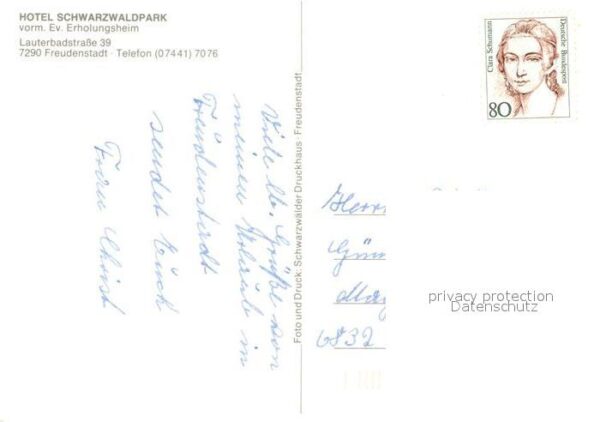 HOTEL SCHWARZWALDPARK
vorm. Ev. Erholungsheim
Lauterbadstraße 39
7290 Freudenstadt · Telefon (07441) 7076
Viele lb. Grüße von
meinem Urlaub in
Freudenstadt
sendet Euch
Frau Christ
Foto und Druck: Schwarzwälder Druckhaus · Freudenstadt
Clara Schumann
Deutsche Bundespost
80
Herrn
Gün
May
6832
privacy protection
Datenschutz